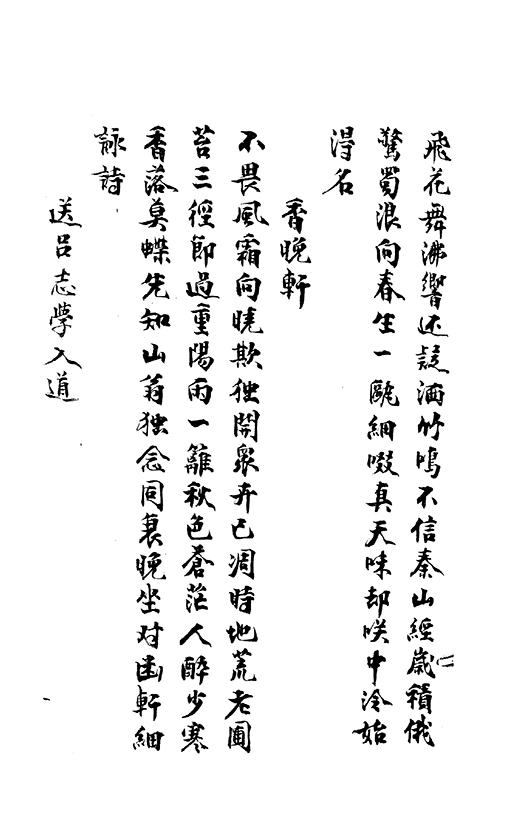 飛花舞沸響还疑洒竹鳴不信秦山經歲積俄
驚蜀浪向春生一甌細啜真天味却咲中泠始
淂名
香晚軒
不畏風霜向晚欺独開衆卉已凋時地荒老圃
苔三徑節過重陽雨一籬秋色蒼茫人醉少寒
香落莫蝶先知山翁独念同衰晚坐对幽軒細
詠詩
送吕志學入道